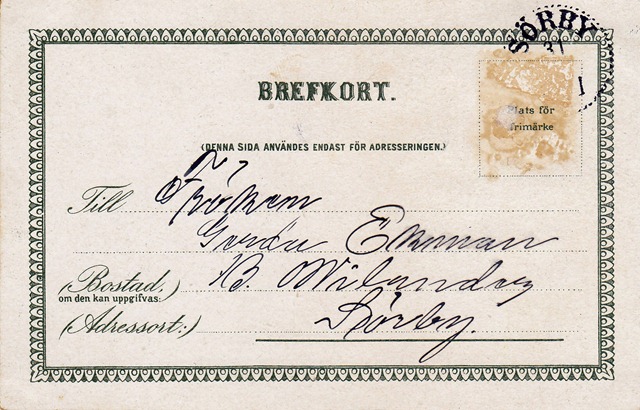 SÖRBY
31
1
BREFKORT.
Plats för
frimärke
(DENNA SIDA ANVÄNDES ENDAST FÖR ADRESSERINGEN.)
Till Fröken
Gerda Ekman
(Bostad,)
om den kan uppgifvas:
(Adressort:) Sörby.